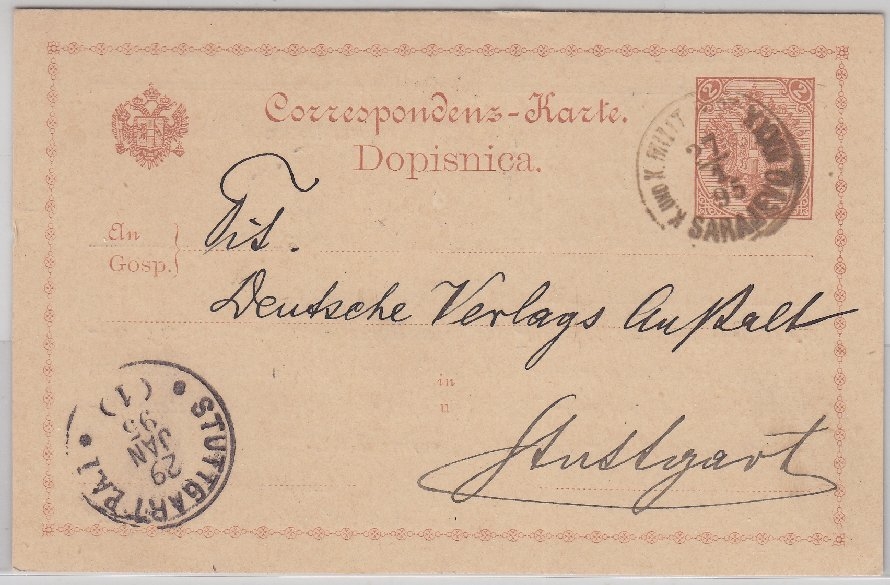 Correspondenz-Karte.
Dopisnica.
2 2
K. UND K. MILIT. POST XXXVII
27/1
95
SARAJEVO
An
Gosp.
Tit.
Deutsche Verlags Anſtalt
in
u
Stuttgart
STUTTGART P.A.1
29
JAN
95
(1)